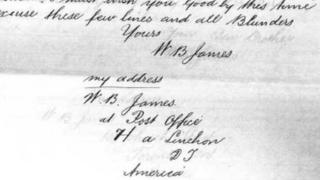 wish you Good by this time
excuse these few lines and all Blunders
Yours
W B James
my address
W. B. James
at Post Office
a Linchon
D T
America